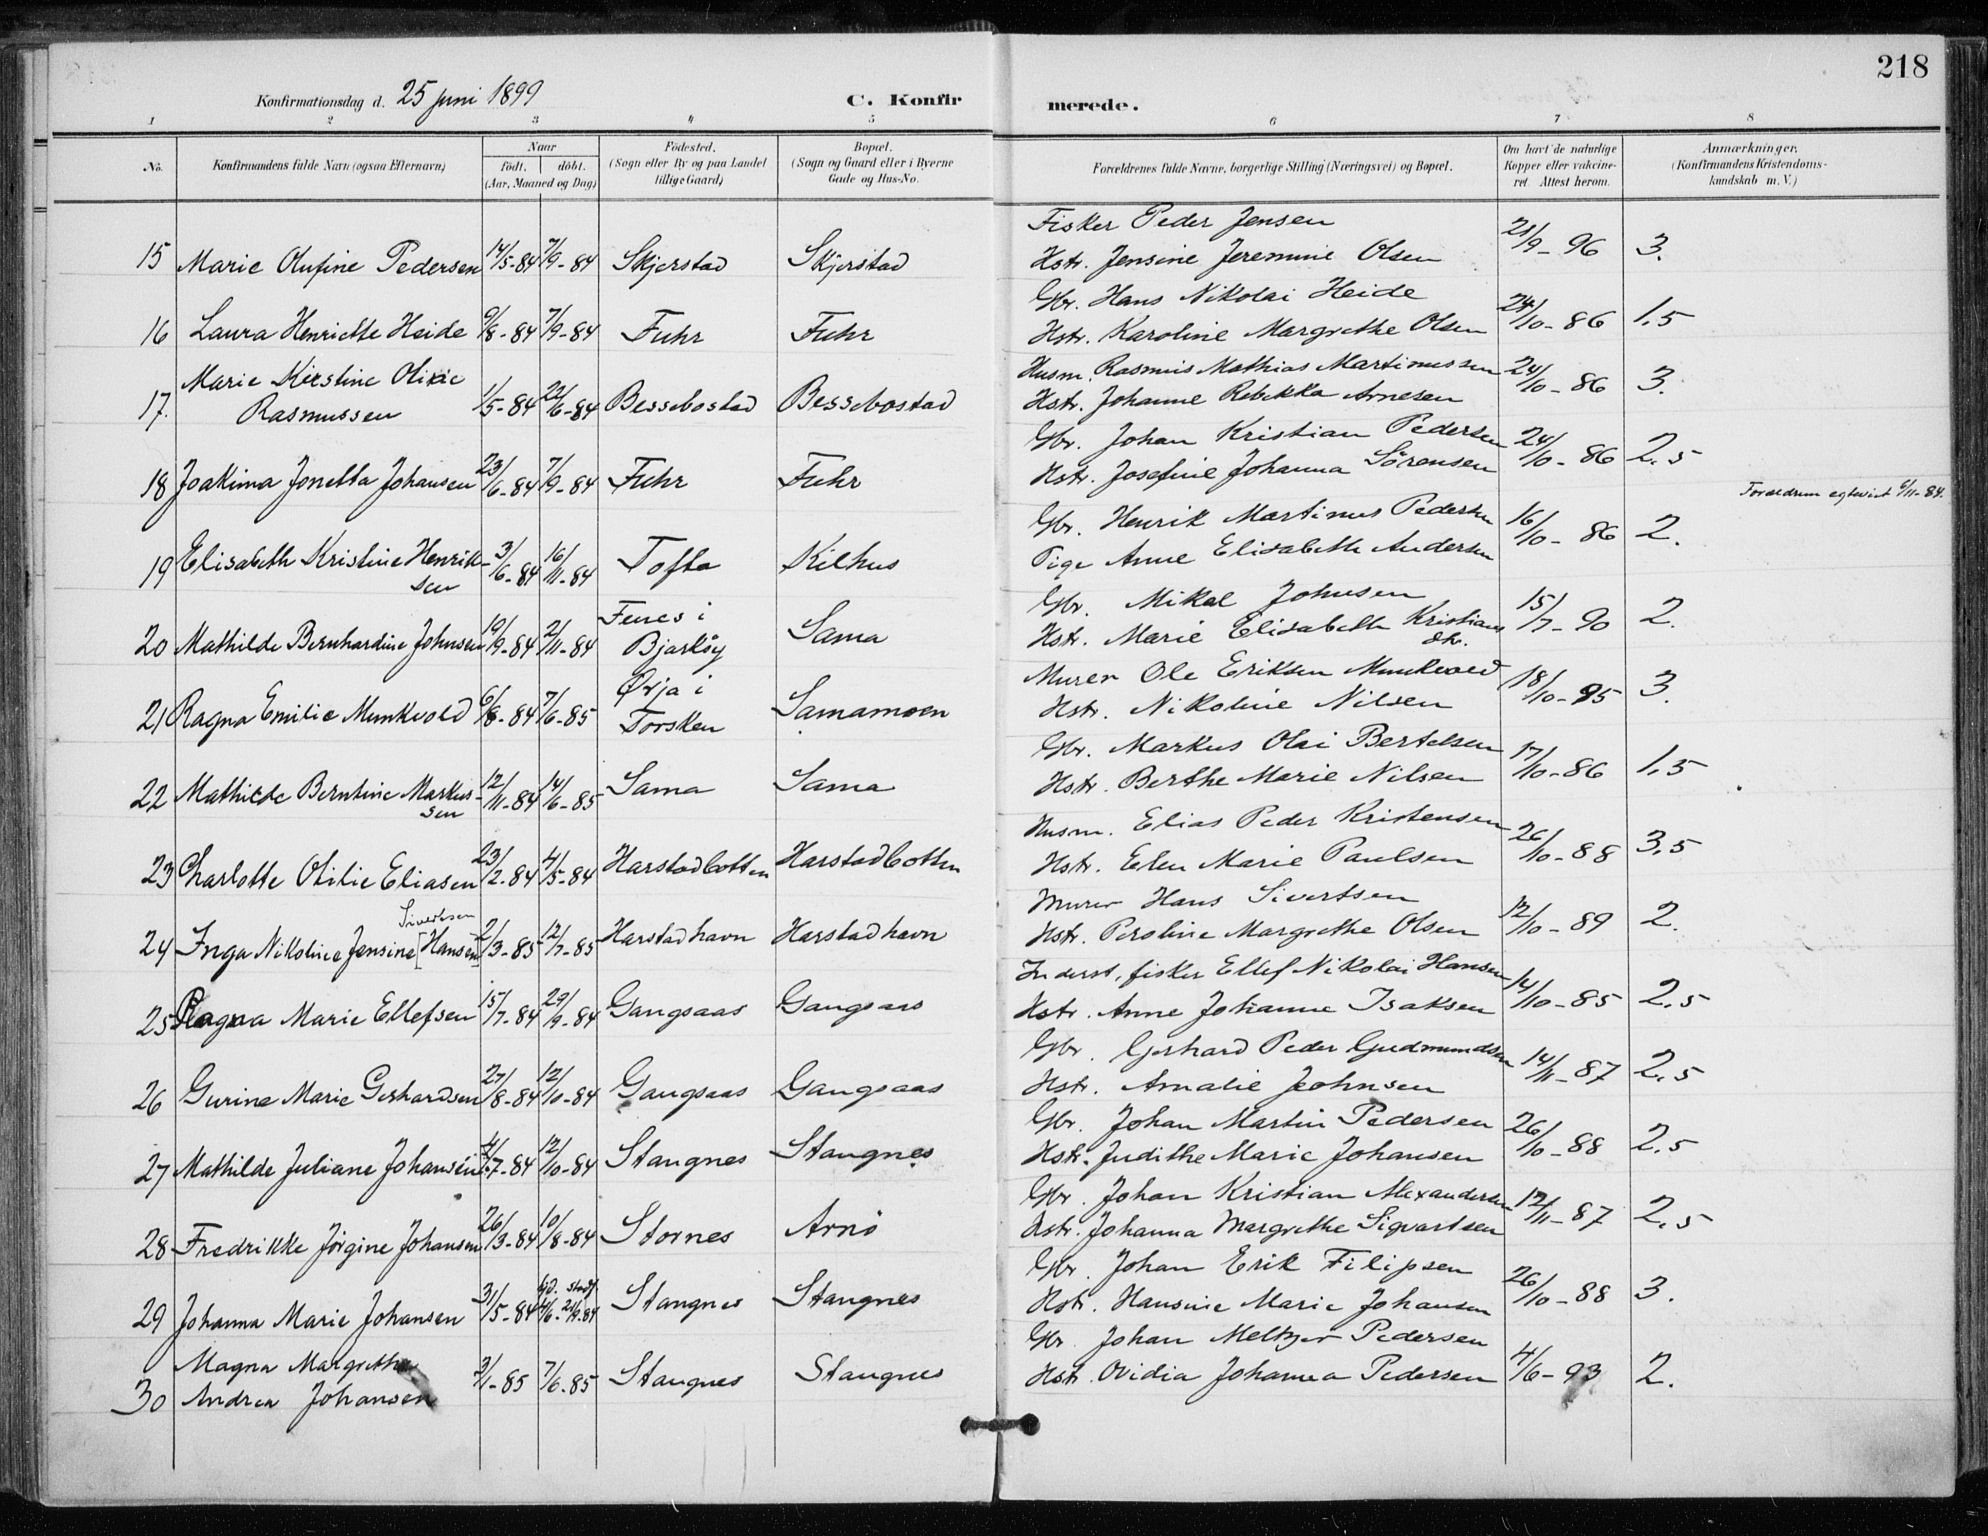 218
Konfirmationsdag d. 25 juni 1899
C. Konfir merede.
1 2 3 4 5 6 7 8
No. Konfirmandens fulde Navn (ogsaa Efternavn)
Naar
født. døbt.
(Aar, Maaned og Dag)
Fødested.
(Sogn eller By og paa Landet
tillige Gaard)
Bopæl.
(Sogn og Gaard eller i Byerne
Gade og Hus-No.
Forældrenes fulde Navne, borgerlige Stilling (Næringsvei) og Bopæl.
Om havt de naturlige
Kopper eller vakcine-
ret. Attest herom.
Anmærkninger.
(Konfirmandens Kristendoms-
kundskab m. V.)
Fisker Peder Jensen
15 Marie Olufine Pedersen 14/5-84 7/9-84 Skjerstad Skjerstad Hstr. Jensine Jeremine Olsen 21/9-96 3.
Gbr. Hans Nikolai Heide
16 Laura Henriette Heide 9/8-84 7/9-84 Fuhr Fuhr Hstr. Karoline Margrethe Olsen 24/10-86 1,5
Marie Kirstine Olixie Husm. Rasmus Mathias Martinussen
17. Rasmussen 1/5-84 22/6-84 Bessebostad Bessebostad Hstr. Johanne Rebekka Arnesen 24/10-86 3.
Gbr. Johan Kristian Pedersen
18 Joakima Jonetta Johansen 23/6-84 7/9-84 Fuhr Fuhr Hstr. Josefine Johanna Sörensen 24/10-86 2.5
Forældrene egteviet 6/11-84.
Gbr. Henrik Martinus Pedersen
19 Elisabeth Kristine Henrik- 3/6-84 16/11-84 Tofta Kilhus Pige Anne Elisabeth Andersen 16/10-86 2.
sen
Fenes i Gbr. Mikal Johnsen
20 Mathilde Bernhardine Johnsen 19/9-84 2/11-84 Bjarköy Sama Hstr. Marie Elisabeth Kristians 15/7-90 2.
dtr.
Ørja i Murer Ole Eriksen Munkvold
21 Ragna Emilie Munkvold 6/8-84 7/6-85 Torsken Samamoen Hstr. Nikoline Nilsen 18/10-95 3.
Gbr. Markus Olai Bertelsen
22 Mathilde Berntine Markus- 12/11-84 14/6-85 Sama Sama Hstr. Berthe Marie Nilsen 17/10-86 1,5
sen
Husm. Elias Peder Kristensen
23 Charlotte Otilie Eliasen 23/2-84 4/5-84 Harstadbotten Harstadbotten Hstr. Elen Marie Paulsen 26/10-88 3.5
Sivertsen Murer Hans Sivertsen
24 Inga Nikoline Jensine [Hansen] 2/3-85 12/7-85 Harstadhavn Harstadhavn Hstr. Peroline Margrethe Olsen 12/10-89 2.
Inderst, fisker Ellef Nikolai Hansen
25 Ragna Marie Ellefsen 15/7-84 29/9-84 Gangsaas Gangsaas Hstr. Anne Johanne Isaksen 14/10-85 2,5
Gbr. Gerhard Peder Gudmundsen
26 Gurine Marie Gerhardsen 27/8-84 12/10-84 Gangsaas Gangsaas Hstr. Amalie Johnsen 14/11-87 2,5
Gbr. Johan Martin Pedersen
27 Mathilde Juliane Johansen 4/7-84 12/10-84 Stangnes Stangnes Hstr. Judithe Marie Johansen 26/10-88 2,5
Gbr. Johan Kristian Alexandersen
28 Fredrikke Jørgine Johansen 26/3-84 10/8-84 Stornes Arnö Hstr. Johanna Margrethe Sigvartsen 12/11-87 2,5
Gbr. Johan Erik Filipsen
hjd. stadf.
29 Johanna Marie Johansen 31/5-84 4/6-21/9.84 Stangnes Stangnes Hstr. Hansine Marie Johansen 26/10-88 3.
Magna Margrethe Gbr. Johan Meltzer Pedersen
30 Andrea Johansen 3/1-85 7/6-85 Stangnes Stangnes Hstr. Ovidia Johanna Pedersen 4/6-93 2.